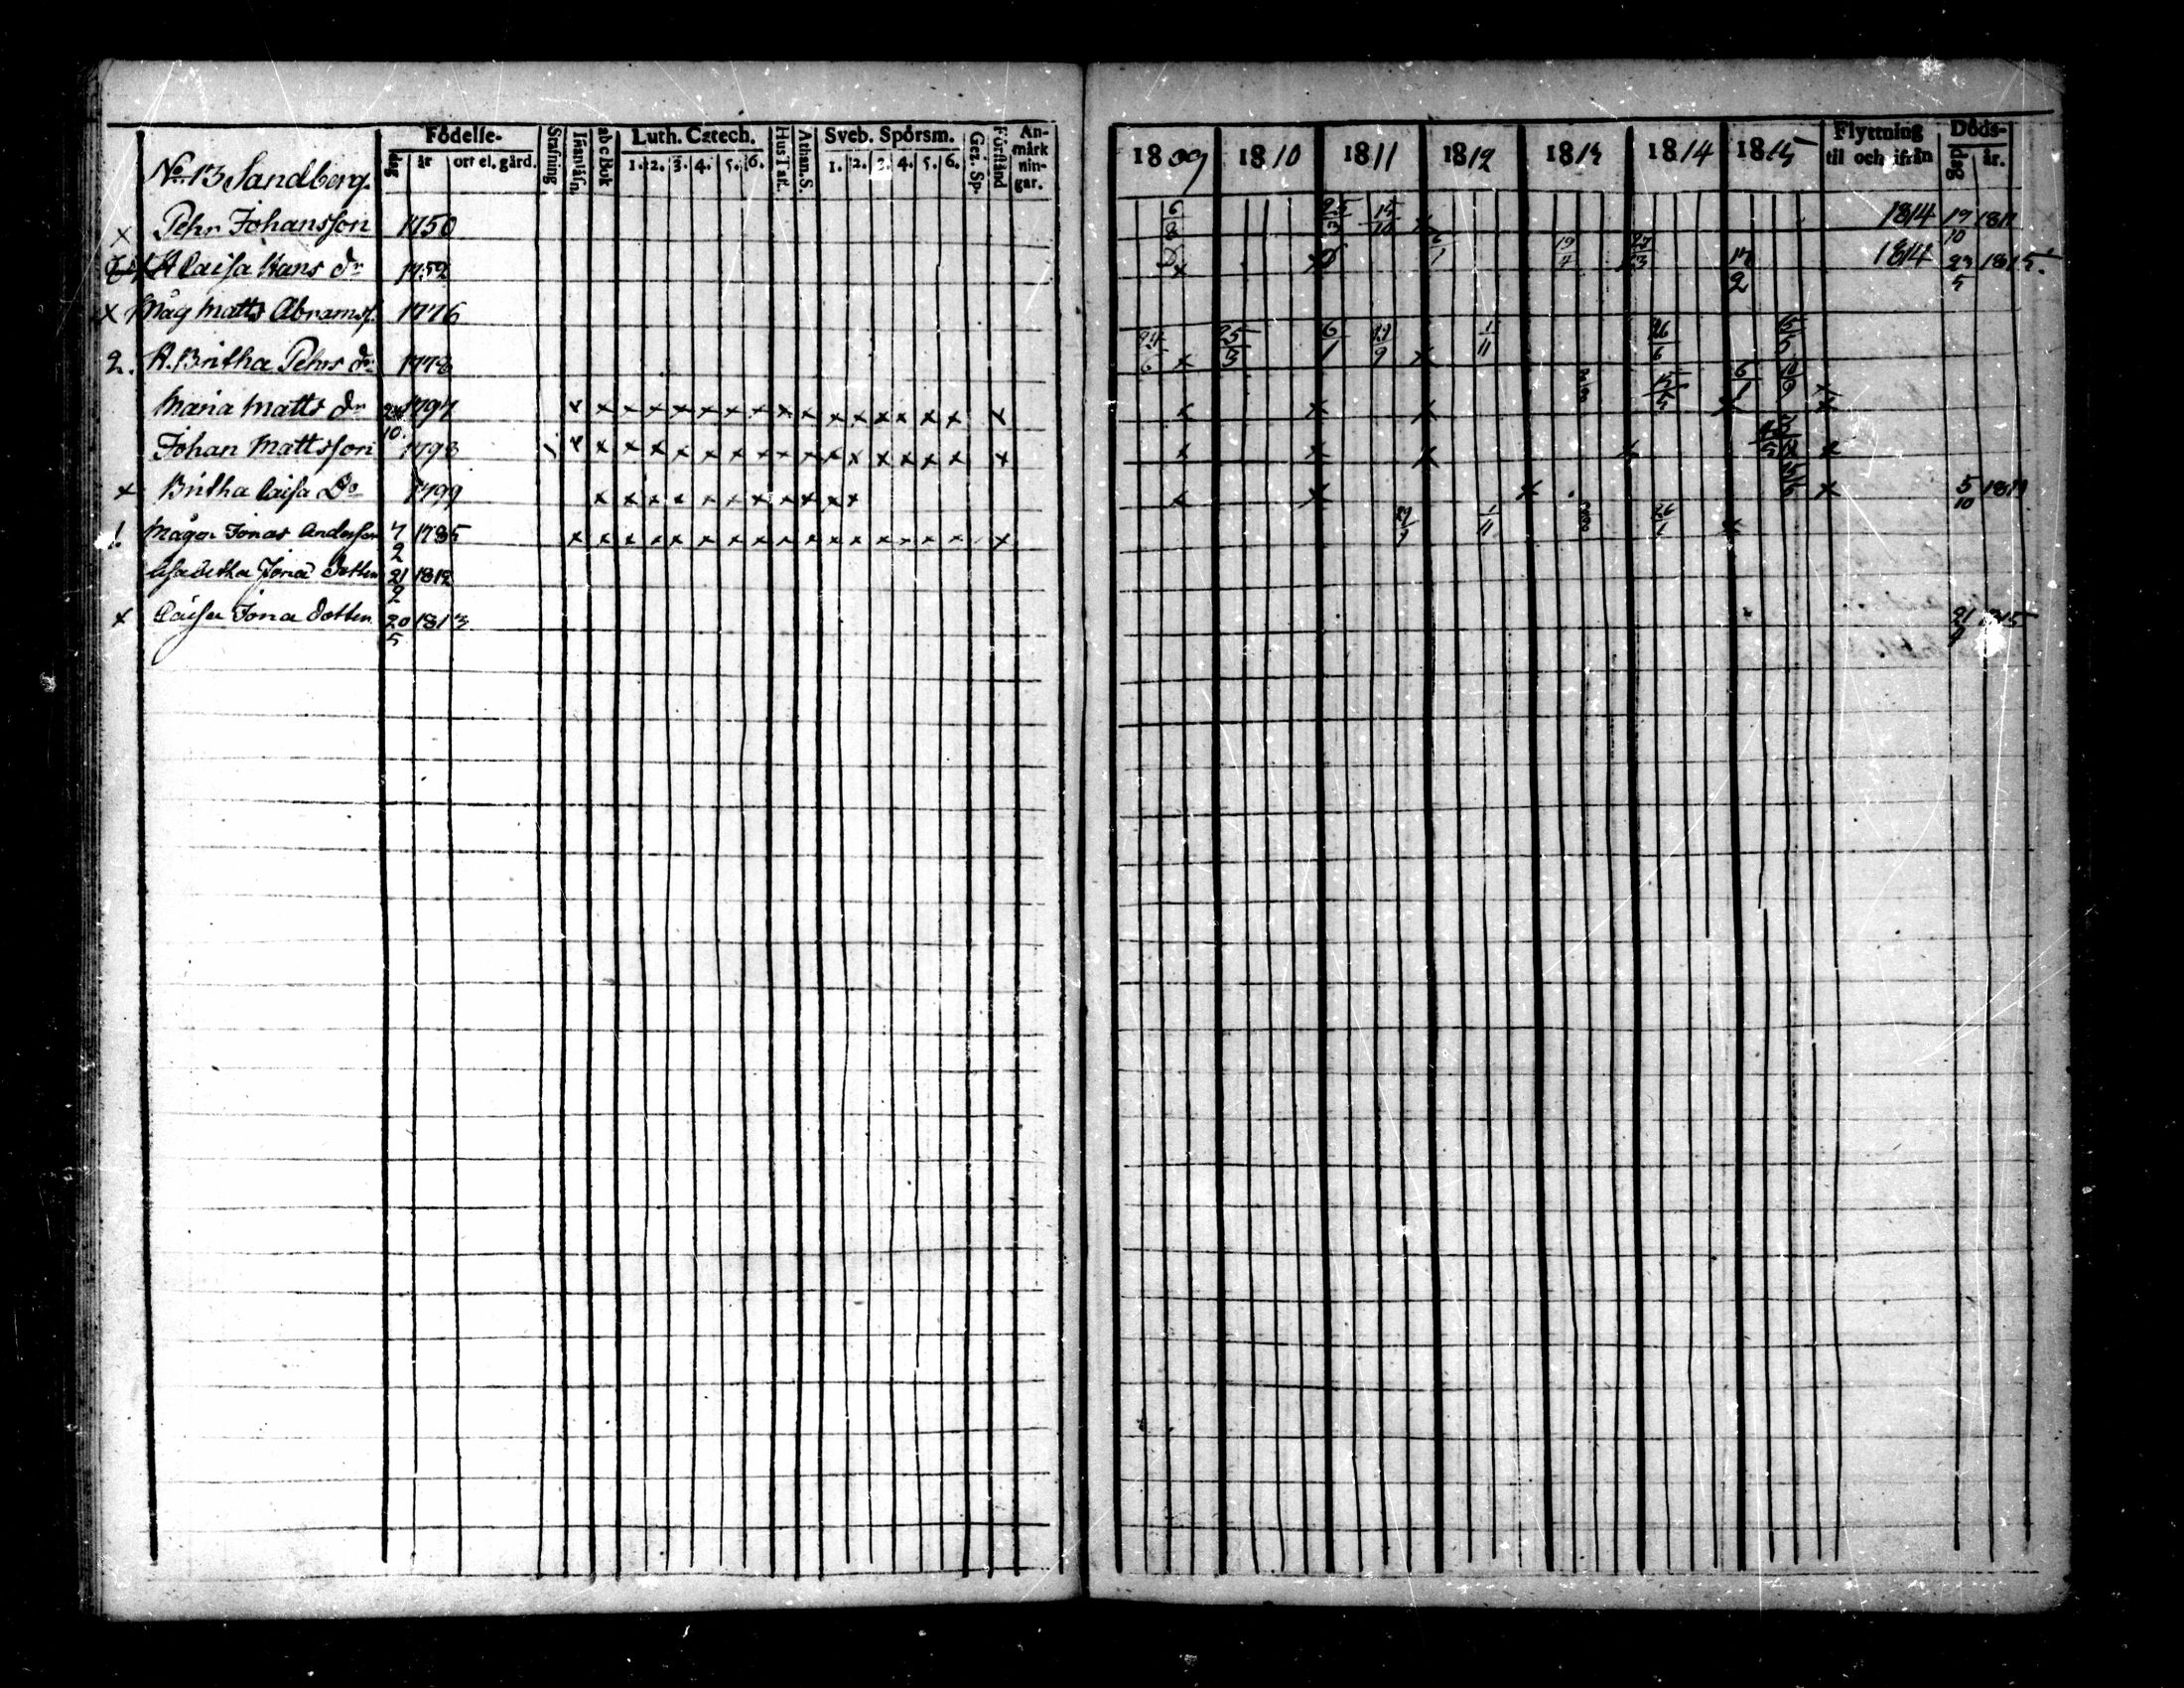 Födelse- Stafning Innanläsn. abc Bok Luth. Catech. Hus Tafl. Athan. S. Sveb. Spörsm. Gez. Sp. Förstånd An-märk nin-gar. 1809 1810 1811 1812 1813 1814 1815 Flyttning til och ifrån Döds-
dag år ort el. gård. 1. 2. 3. 4. 5. 6. 1. 2. 3. 4. 5. 6. dag år.
No 13 Sandberg.
x Pehr Johansson 1750 6/8 25/3 15/10 x 1814 17/10 1811
H Caisa Hans dr 1752 D x D 6/1 19/4 27/3 17/2 1814 23/5 1815.
x Måg Matts Abramss. 1776
2. H. Britha Pehrs dr 1778 24/6 x 25/3 6/1 29/9 x 1/11 26/6 15/5
Maria Matts dr 24/10 1797 x x x x x x x x x x x x x x x x x x x x 15/5 x 6/1 10/9 x
Johan Mattsson 1798 x x x x x x x x x x x x x x x x x x x x x x
x Britha Caisa Do 1799 x x x x x x x x x x x x x x x x 5/10 1811
1. Mågen Jonas Andersson 7/2 1785 x x x x x x x x x x x x x x x x x 1/11 26/1 x
Lisa Betha Jona Dotter 21/2 1812
x Caisa Jona dotter 20/5 1813 21/9 1815